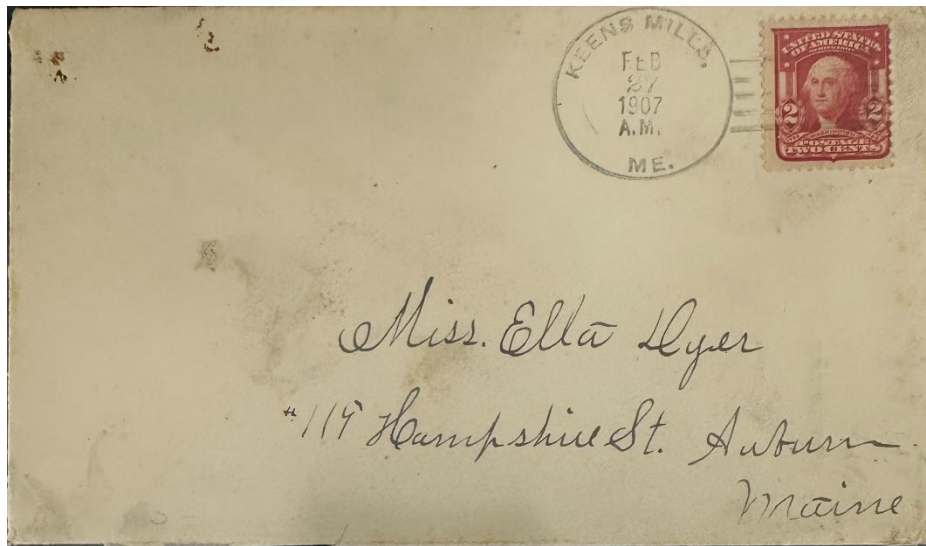 KEENS MILLS,
FEB
27
1907
A.M.
ME.
UNITED STATES
OF AMERICA
2 2
POSTAGE
TWO CENTS
Miss. Ella Dyer
Hampshire St. Auburn
Maine